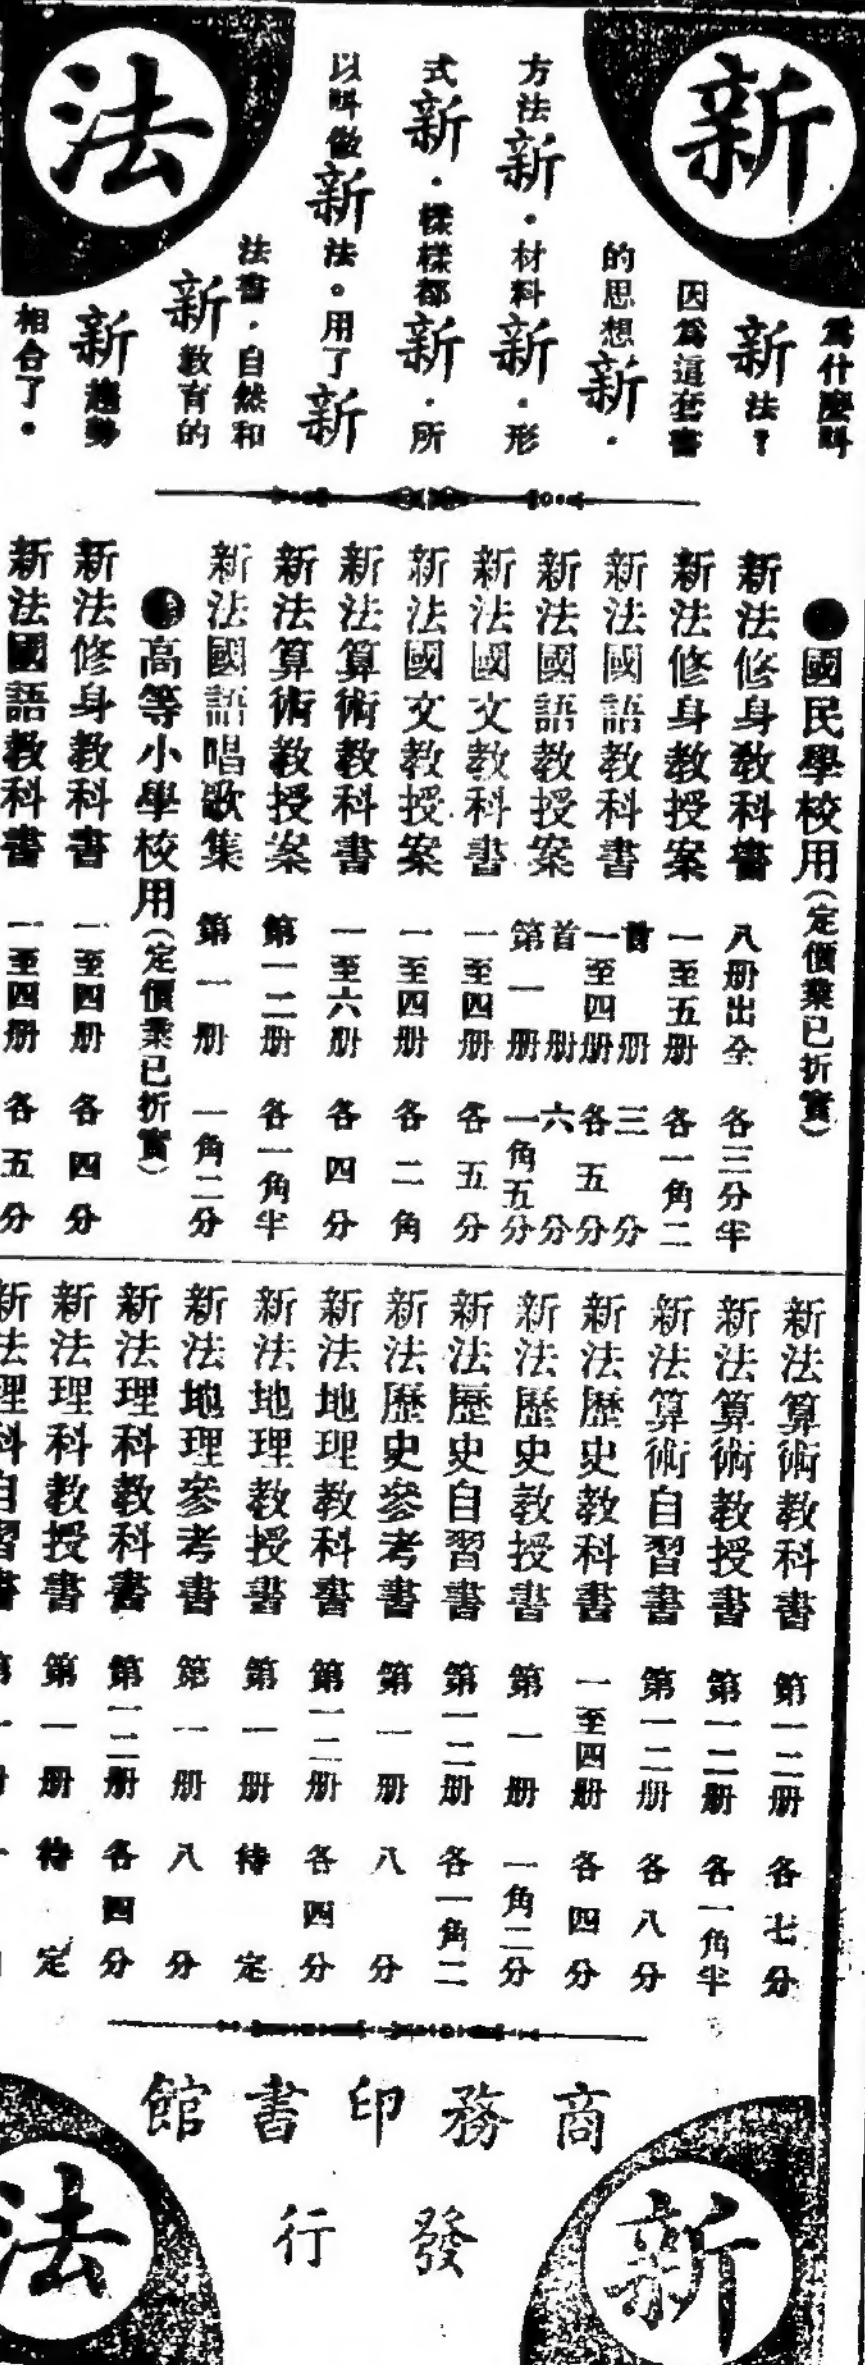 新
法
為什麼叫
新法？
因為這套書
的思想新．
方法新．材料新．形
式新．樣樣都新．所
以叫做新法。用了新
法書．自然和
新教育的
新趨勢
相合了。
國民學校用（定價業已折實）
新法修身教科書 八册出全 各三分半
新法修身教授案 一至五册 各一角二
新法國語教科書 首册 三分 一至四册 各五分
新法國語教授案 首册 六分 第一册 一角五分
新法國文教科書 一至四册 各五分
新法國文教授案 一至四册 各二角
新法算術教科書 一至六册 各四分
新法算術教授案 第一二册 各一角半
新法國語唱歌集 第一册 一角二分
高等小學校用（定價業已折實）
新法修身教科書 一至四册 各四分
新法國語教科書 一至四册 各五分
新法算術教科書 第一二册 各七分
新法算術教授書 第一二册 各一角半
新法算術自習書 第一二册 各八分
新法歷史教科書 一至四册 各四分
新法歷史教授書 第一册 一角二分
新法歷史自習書 第一二册 各一角二
新法歷史參考書 第一册 八分
新法地理教科書 第一二册 各四分
新法地理教授書 第一册 待定
新法地理參考書 第一册 八分
新法理科教科書 第一二册 各四分
新法理科教授書 第一册 待定
新法理科自習書
商務印書館
發行
新
法